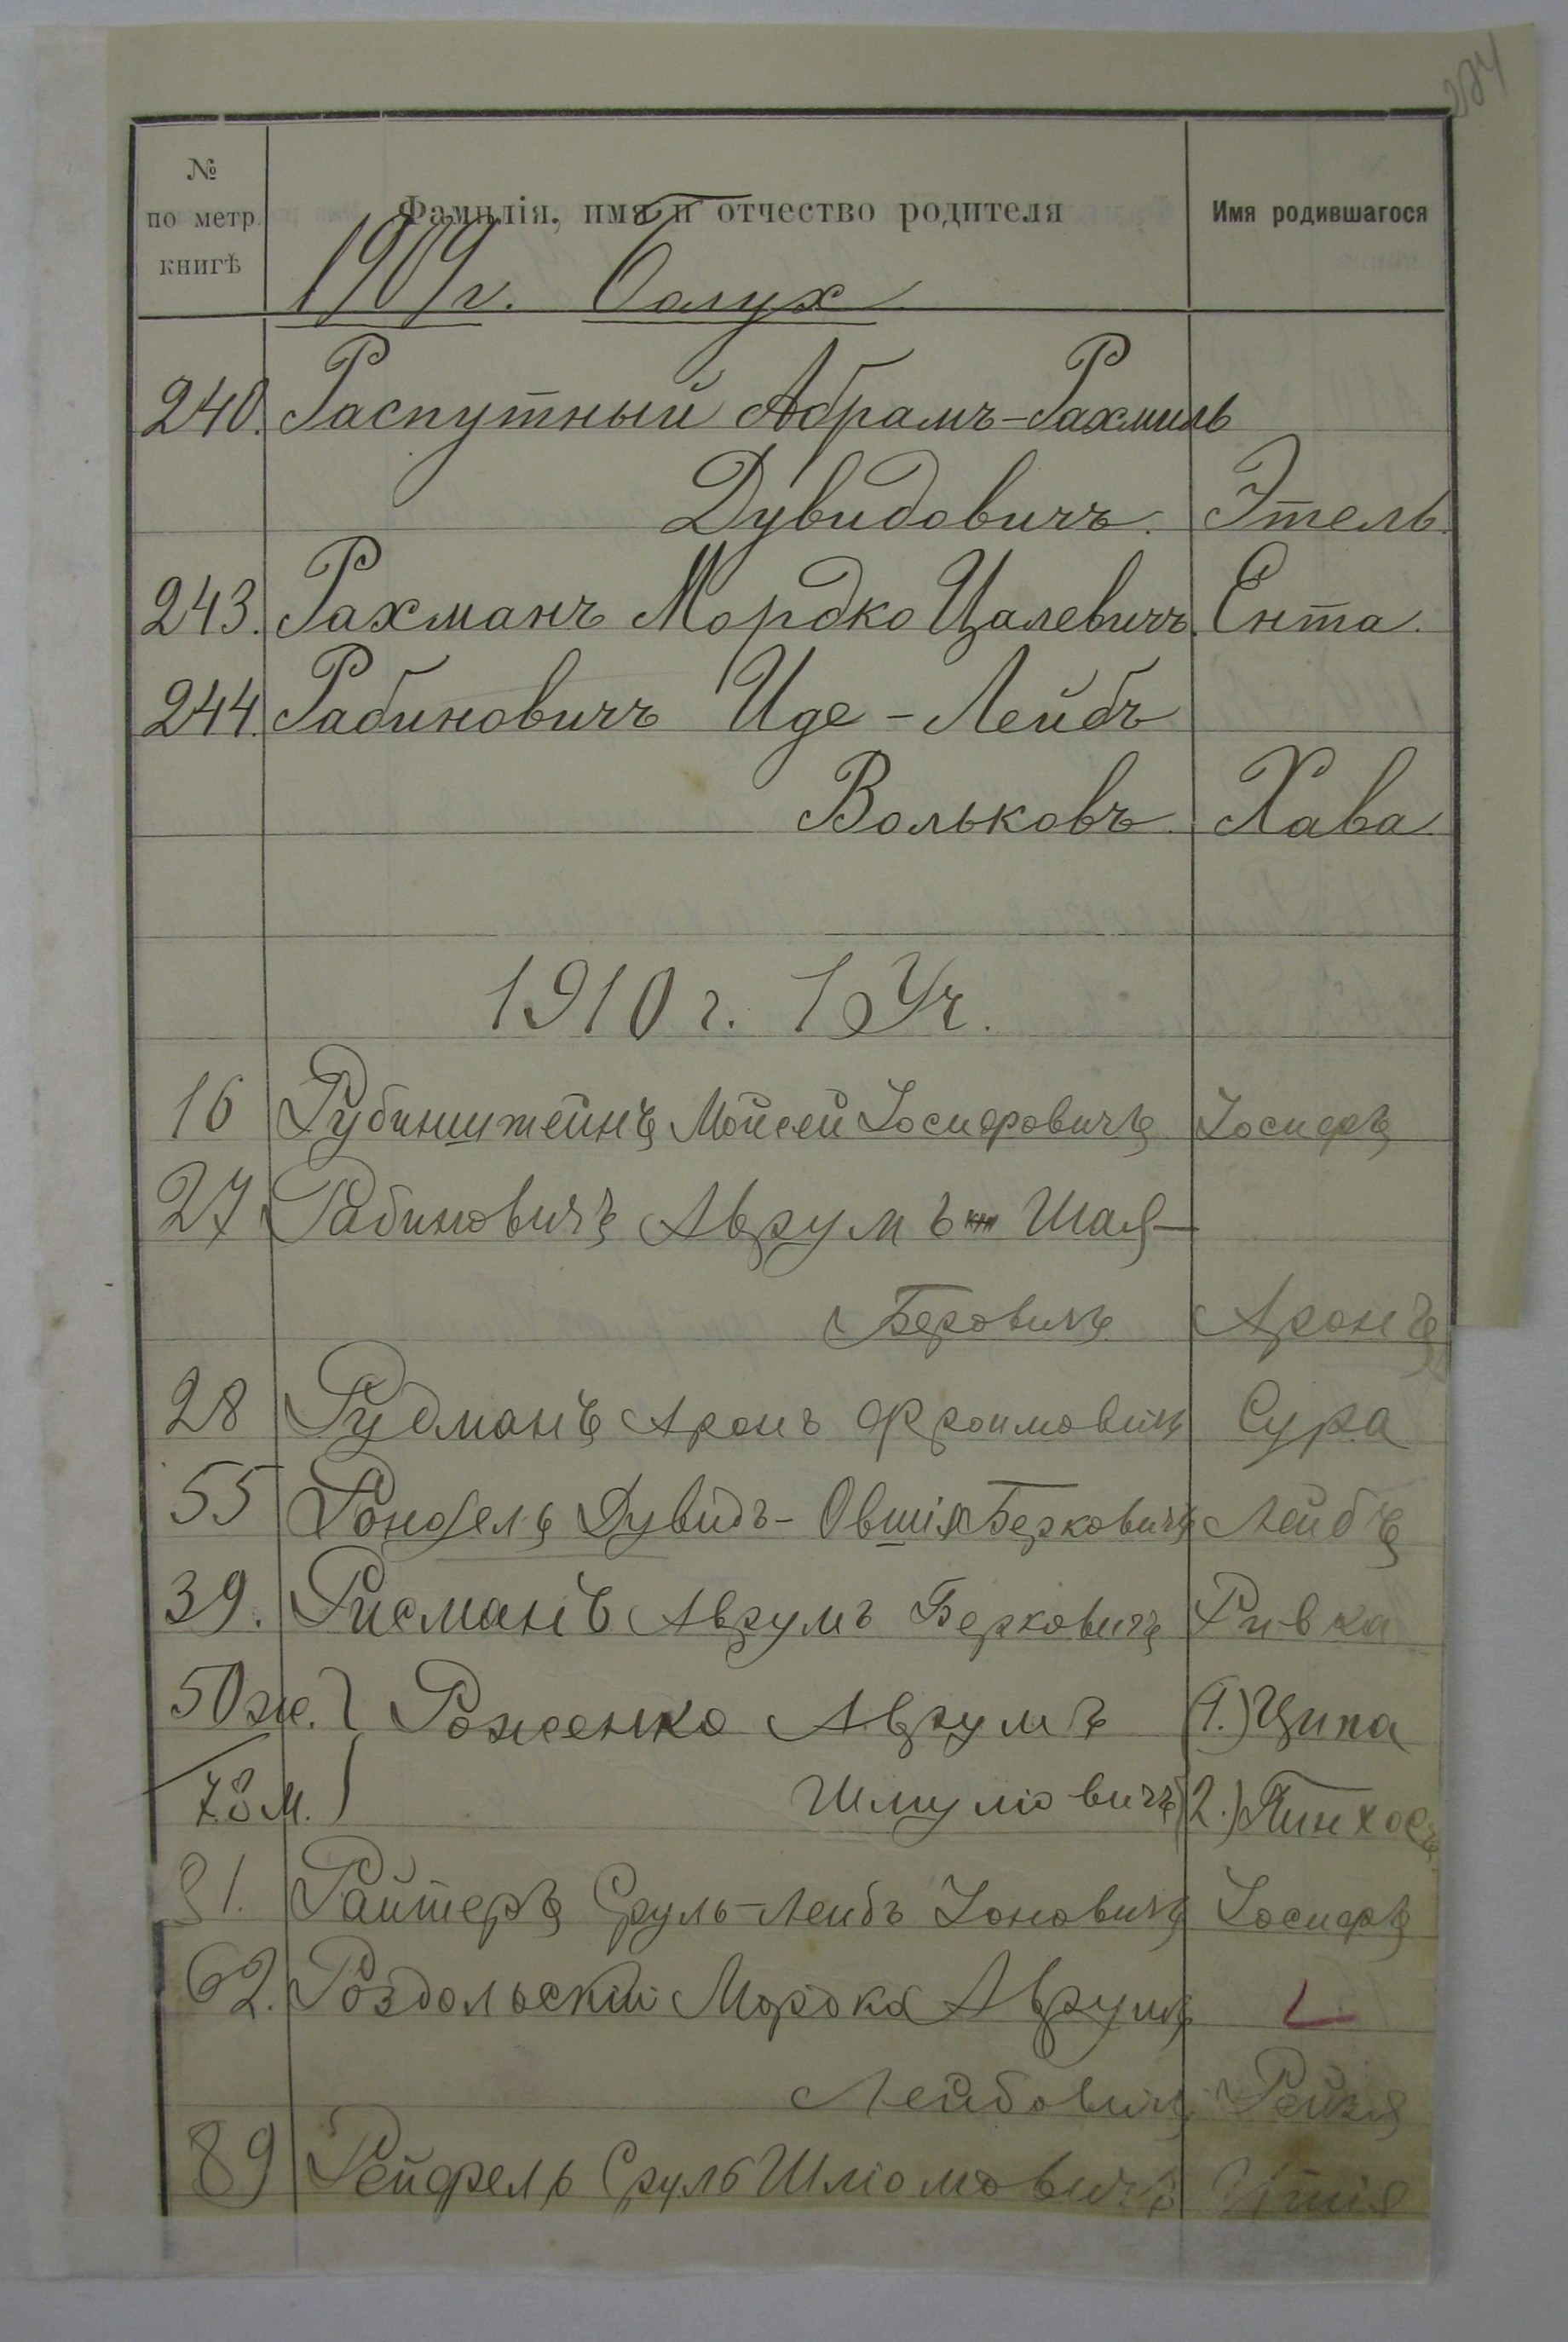 284
№ по метр. книгѣ
Фамилія, имя и отчество родителя
Имя родившагося
1909 г.
240. Распутный Абрамъ-Рахмиль
Дувидовичъ. Этель.
243. Рахманъ Мордко Цалевичъ. Ента.
244. Рабиновичъ Иде-Лейбъ
Вольковъ Хава
1910 г. 1 Уч.
16 Рубинштейнъ Мойсей Іосифовичъ Іосифъ
27 Рабиновичъ Аврумъ Шая-
Беровичъ Аронъ
28 Рудманъ Аронъ Фроимовичъ Сура
55 Рондель Дувидъ-Овшія Берковичъ Лейбъ
39. Рисманъ Аврумъ Берковичъ Ривка
50 ж. } Роженко Аврумъ (1.) Ципа
78 м. Шмуліовичъ (2.) Пинхосъ
31. Райтеръ Сруль-Лейбъ Іоновичъ Іосифъ
62. Роздольскій Мордка Аврумъ
Лейбовичъ Рейзя
89 Рейфель Сруль Шліомовичъ